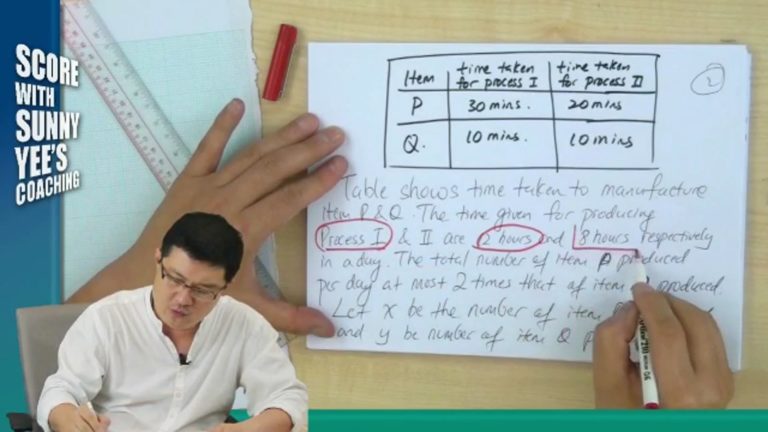 SCORE
WITH
SUNNY
YEE'S
COACHING
2
Item time taken for process I time taken for process II
P 30 mins. 20 mins
Q. 10 mins. 10 mins
Table shows time taken to manufacture
item P & Q. The time given for producing
Process I & II are 2 hours and 8 hours respectively
in a day. The total number of item P produced
per day at most 2 times that of item produced.
Let x be the number of item
and y be number of item Q